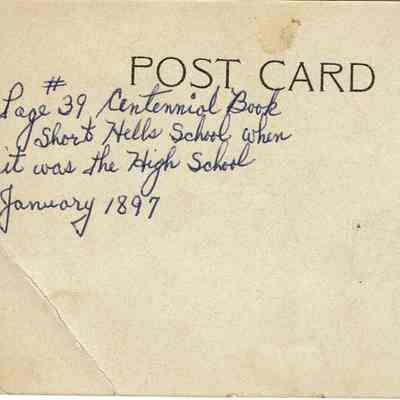 POST CARD
#
Page 39 Centennial Book
Short Hills School when
it was the High School
January 1897